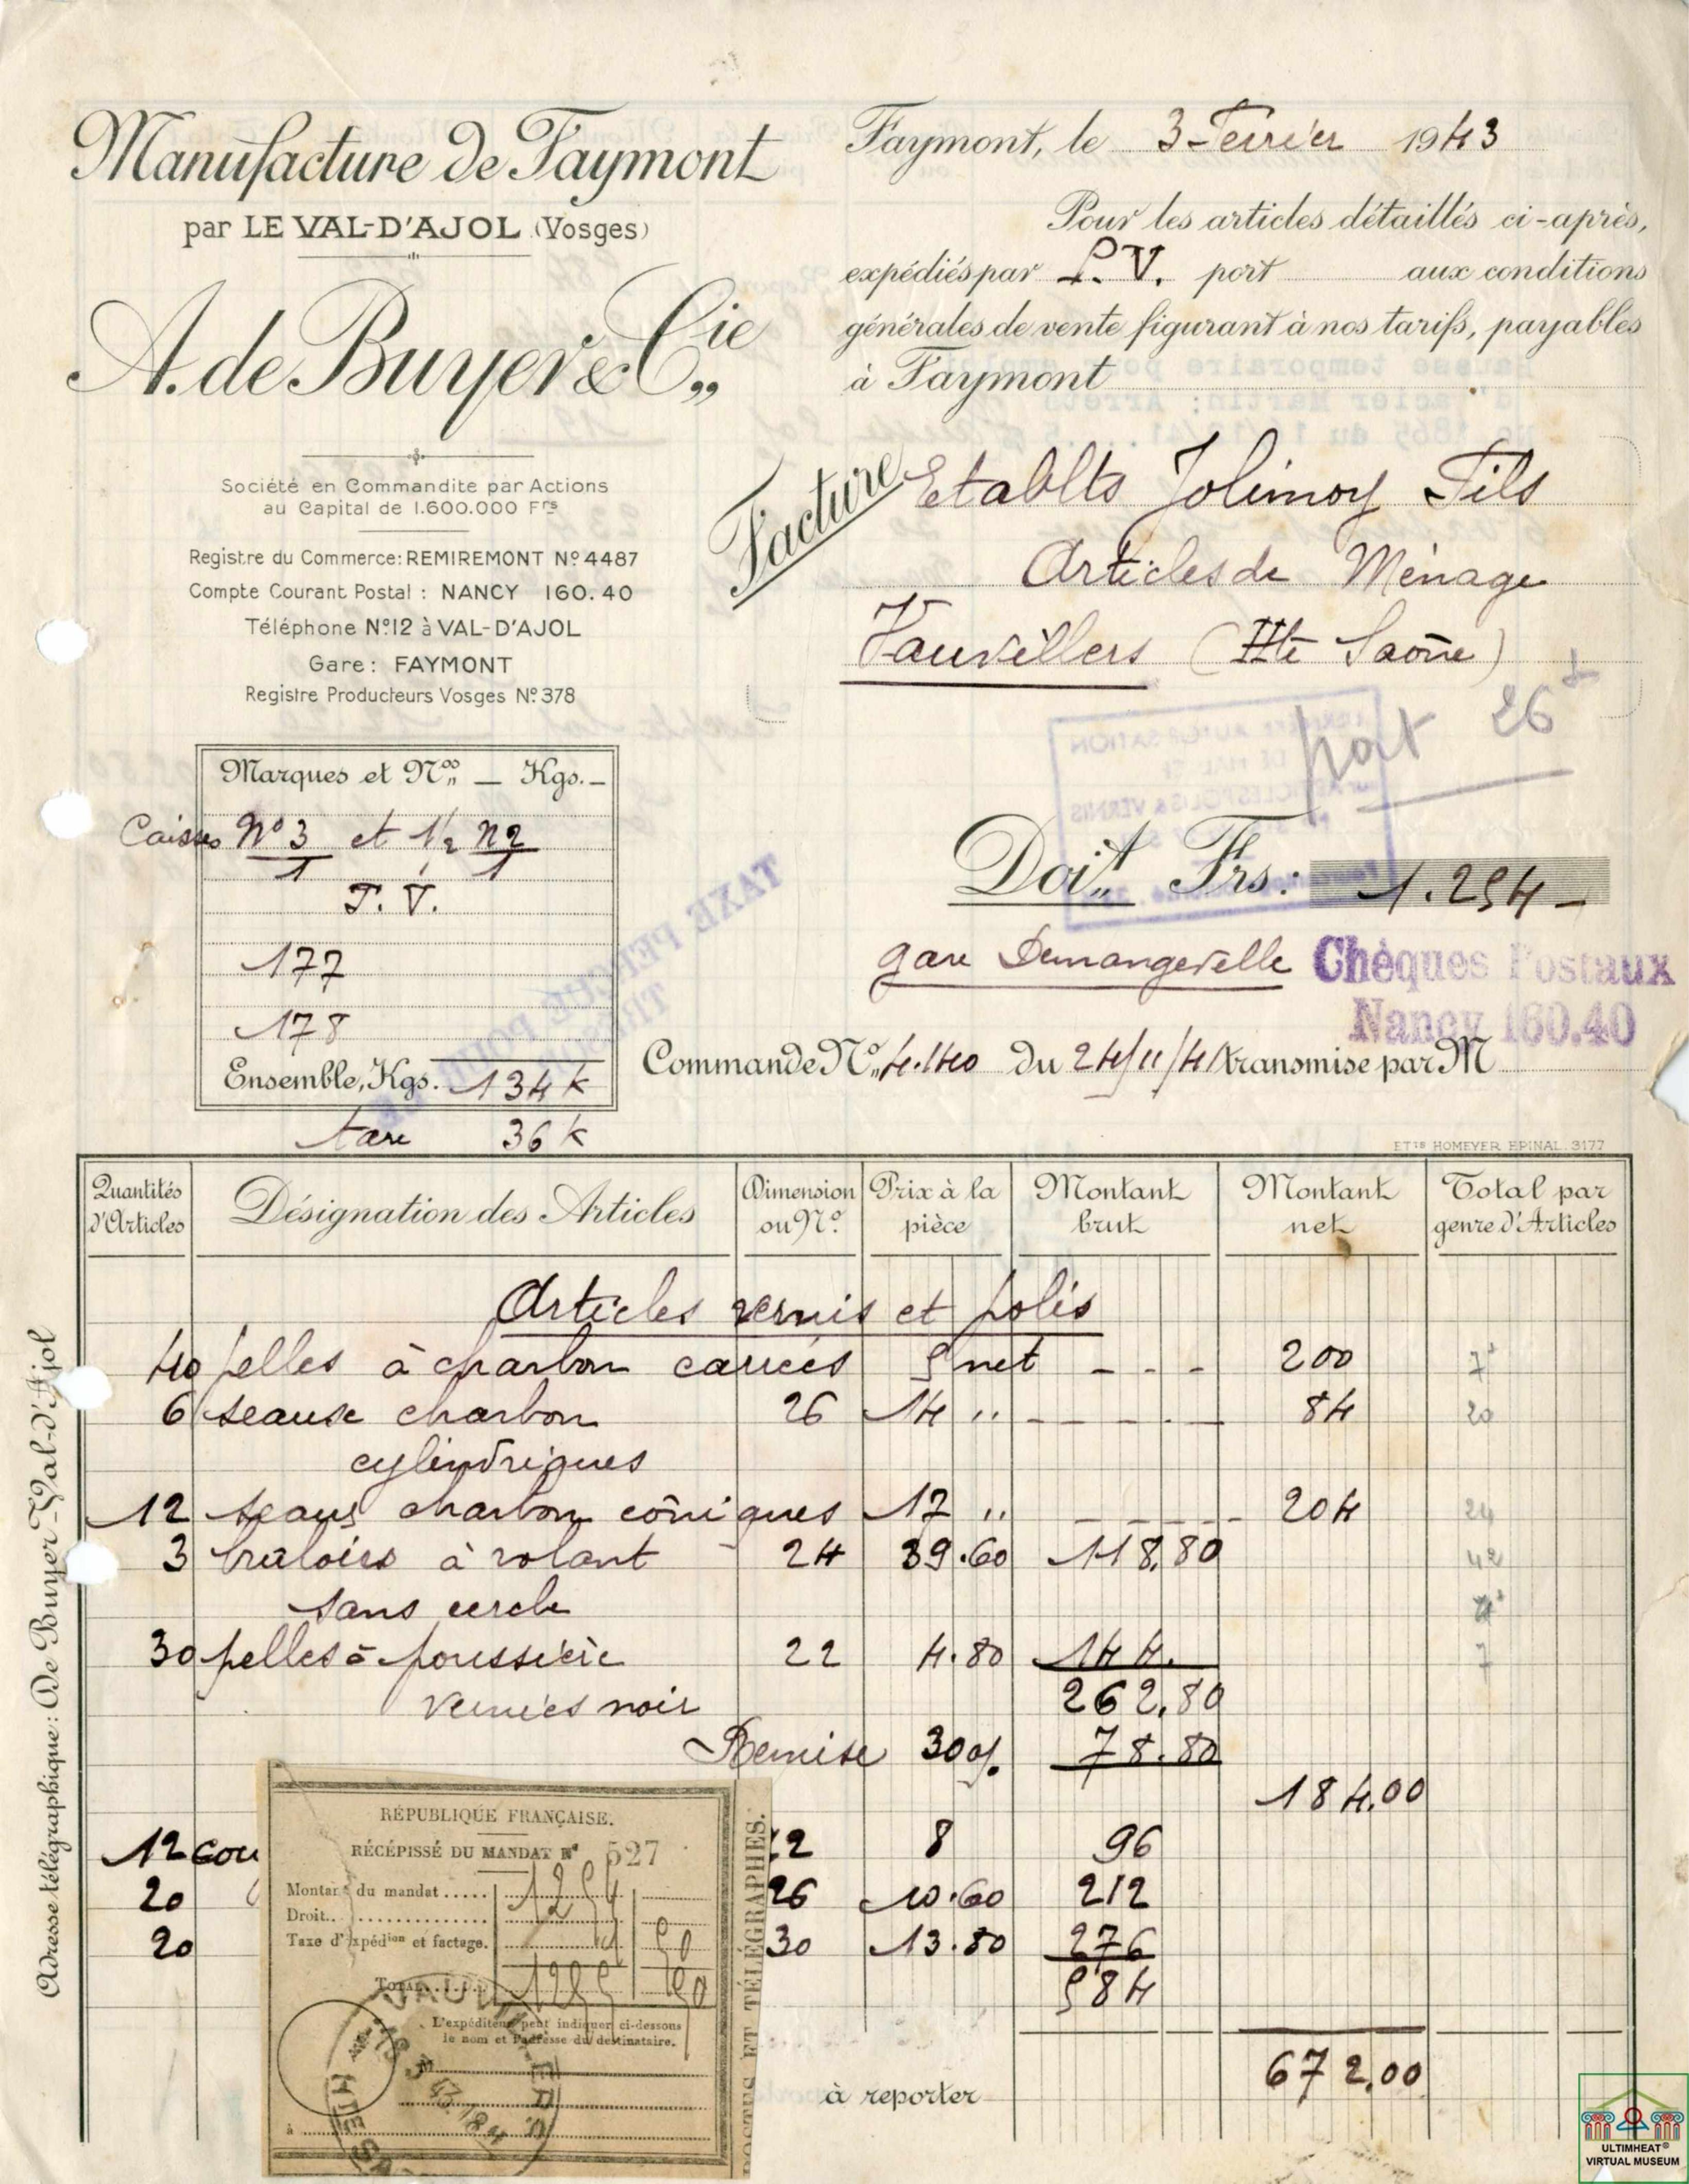 Manufacture de Faymont
par LE VAL-D'AJOL (Vosges)
A. de Buyer & Cie
Société en Commandite par Actions
au Capital de 1.600.000 Frs
Registre du Commerce: REMIREMONT Nº 4487
Compte Courant Postal : NANCY 160.40
Téléphone Nº 12 à VAL-D'AJOL
Gare: FAYMONT
Registre Producteurs Vosges Nº 378
Faymont, le 3 Fevrier 1943
Pour les articles détaillés ci-après,
expédiés par P.V. port aux conditions
générales de vente figurant à nos tarifs, payables
à Faymont
Facture
Etablts Jolimoy Fils
Articles de Ménage
Vauvillers (Hte Saône)
port 26
Marques et Nos — Kgs. —
Caisses Nº 3 et 1/2 N2
1 1
P. V.
177
178
Ensemble, Kgs. 134 k
tare 36 k
Doit Frs: 1.254 —
gare Demangevelle
Chèques Postaux
Nancy 160.40
Commande Nº 4.140 du 24/11/41 transmise par M
ETts HOMEYER. EPINAL. 3177
Quantités d'Articles Désignation des Articles Dimension ou Nº Prix à la pièce Montant brut Montant net Total par genre d'Articles
Articles vernis et polis
40 pelles à charbon carrées 5 net - - - 200 7
6 seaux charbon 26 14 " - - - - 84 20
cylindriques
12 seaux charbon côniques 17 " - - - - 204 24
3 bruloirs à volant - 24 39.60 118.80 42
sans cercle
30 pelles à poussière 22 4.80 144. 7
vernies noir 262.80
Remise 30% 78.80
184.00
12 cou 22 8 96
20 26 10.60 212
20 30 13.80 276
584
672.00
à reporter
RÉPUBLIQUE FRANÇAISE.
RÉCÉPISSÉ DU MANDAT Nº 527
Montant du mandat ..... 1254
Droit...
Taxe d'expédion et factage. 1 90
TOTAL.... 1255 90
L'expéditeur peut indiquer ci-dessous
le nom et l'adresse du destinataire.
à
POSTES ET TÉLÉGRAPHES.
Adresse télégraphique: De Buyer-Val-d'Ajol
ULTIMHEAT®
VIRTUAL MUSEUM